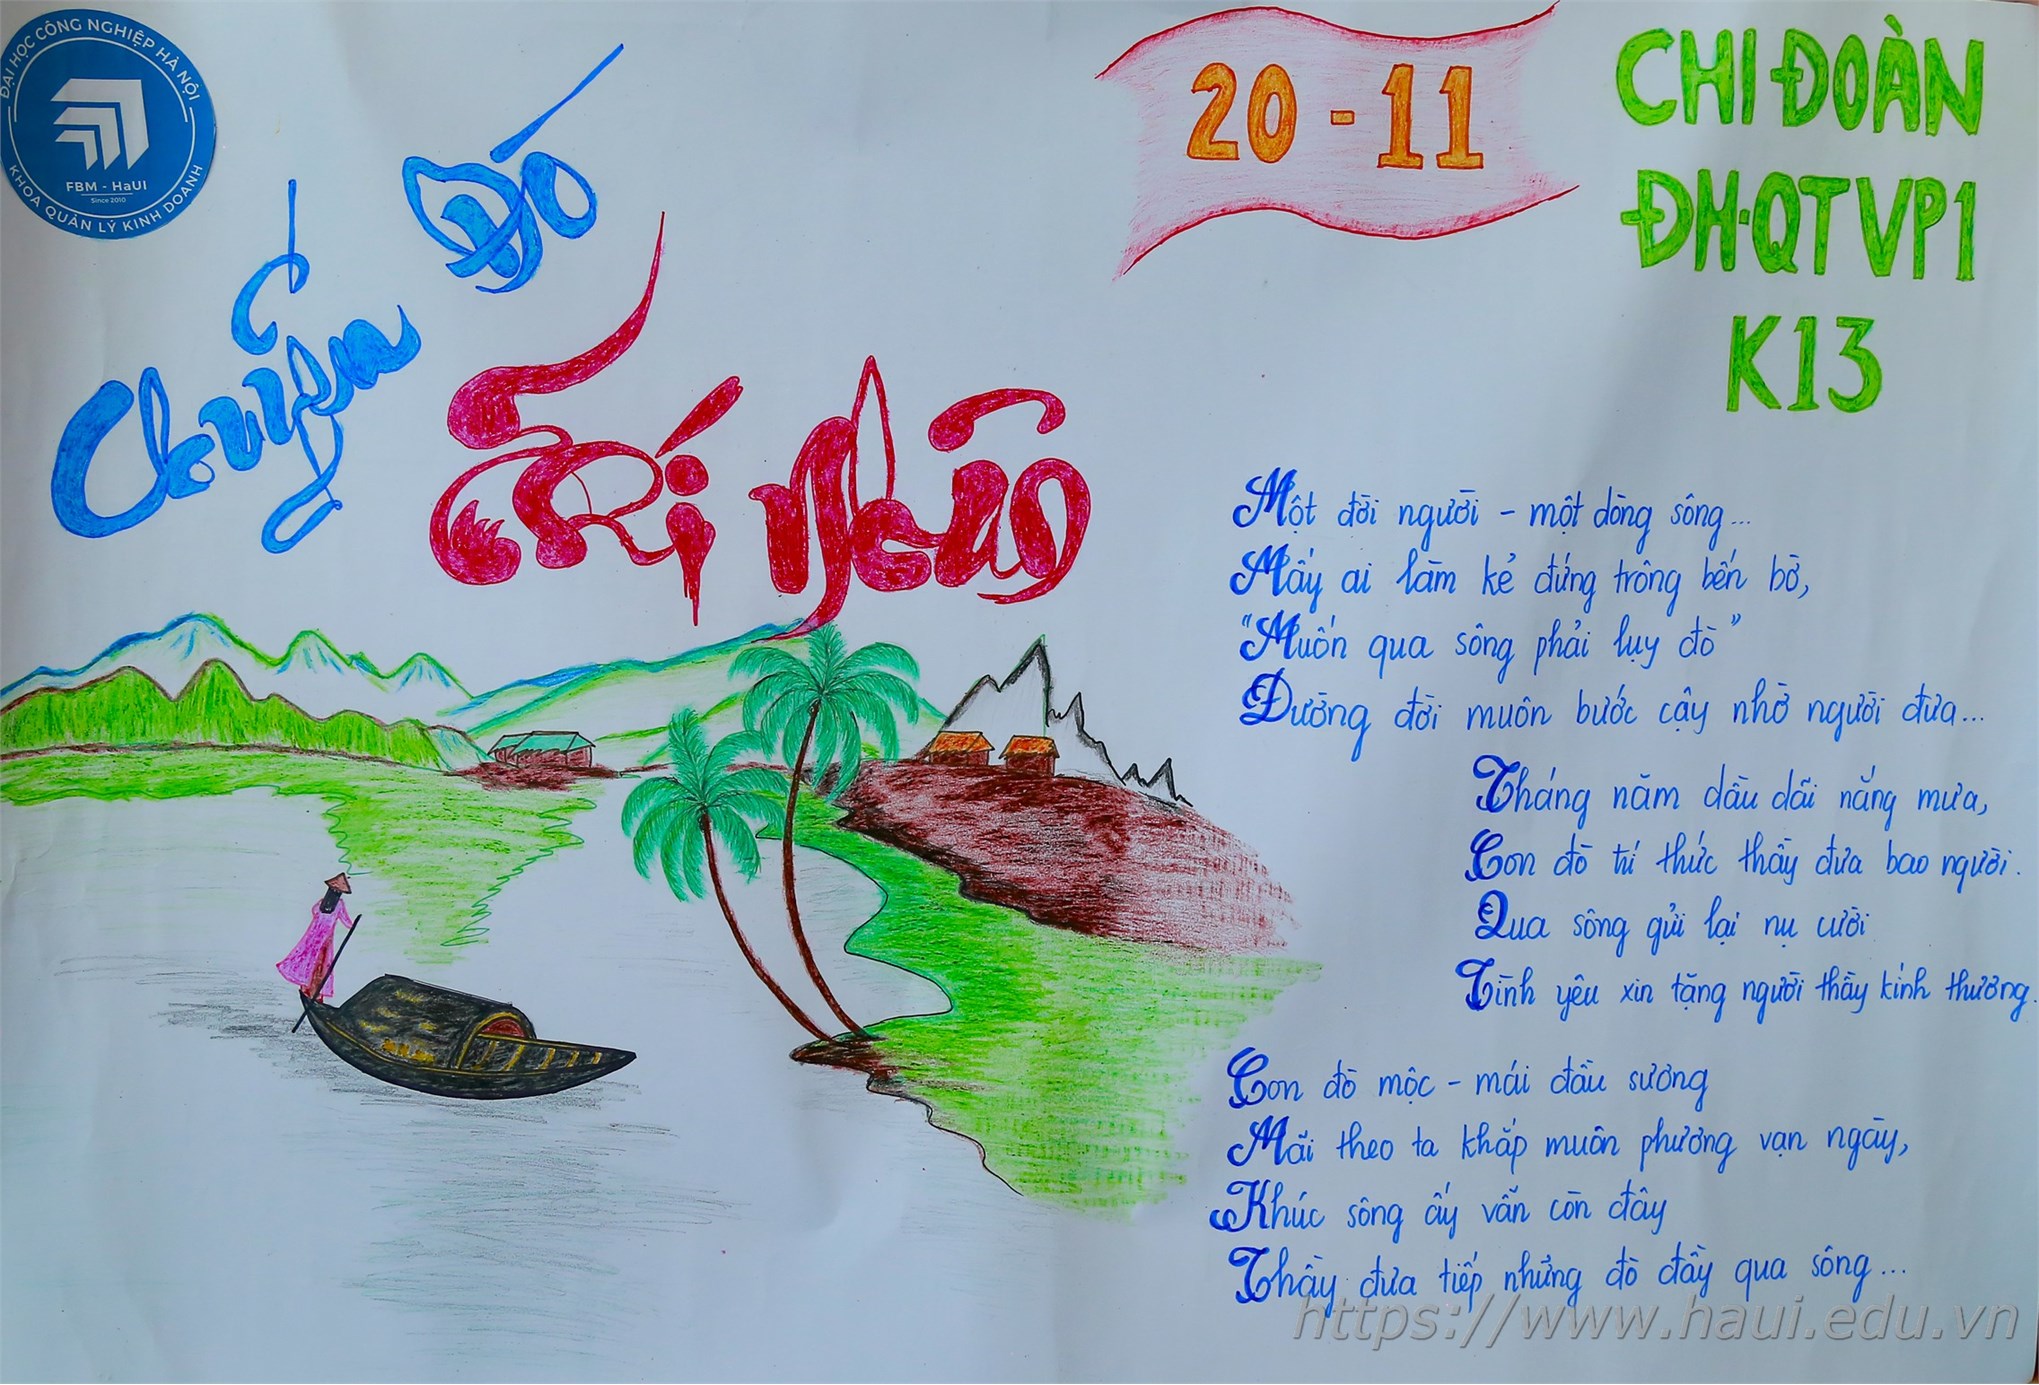 ĐẠI HỌC CÔNG NGHIỆP HÀ NỘI
FBM - HaUI
Since 2010
KHOA QUẢN LÝ KINH DOANH
Chuyến Đò
Trí Nhân
20 - 11
CHI ĐOÀN
ĐH-QTVP1
K13
Một đời người - một dòng sông...
Mấy ai làm kẻ đứng trông bến bờ,
"Muốn qua sông phải lụy đò"
Đường đời muôn bước cậy nhờ người đưa...
Tháng năm dầu dãi nắng mưa,
Con đò trí thức thầy đưa bao người.
Qua sông gửi lại nụ cười
Tình yêu xin tặng người thầy kính thương.
Con đò mộc - mái đầu sương
Mãi theo ta khắp muôn phương vạn ngày,
Khúc sông ấy vẫn còn đây
Thầy đưa tiếp những đò đầy qua sông...
https://www.haui.edu.vn